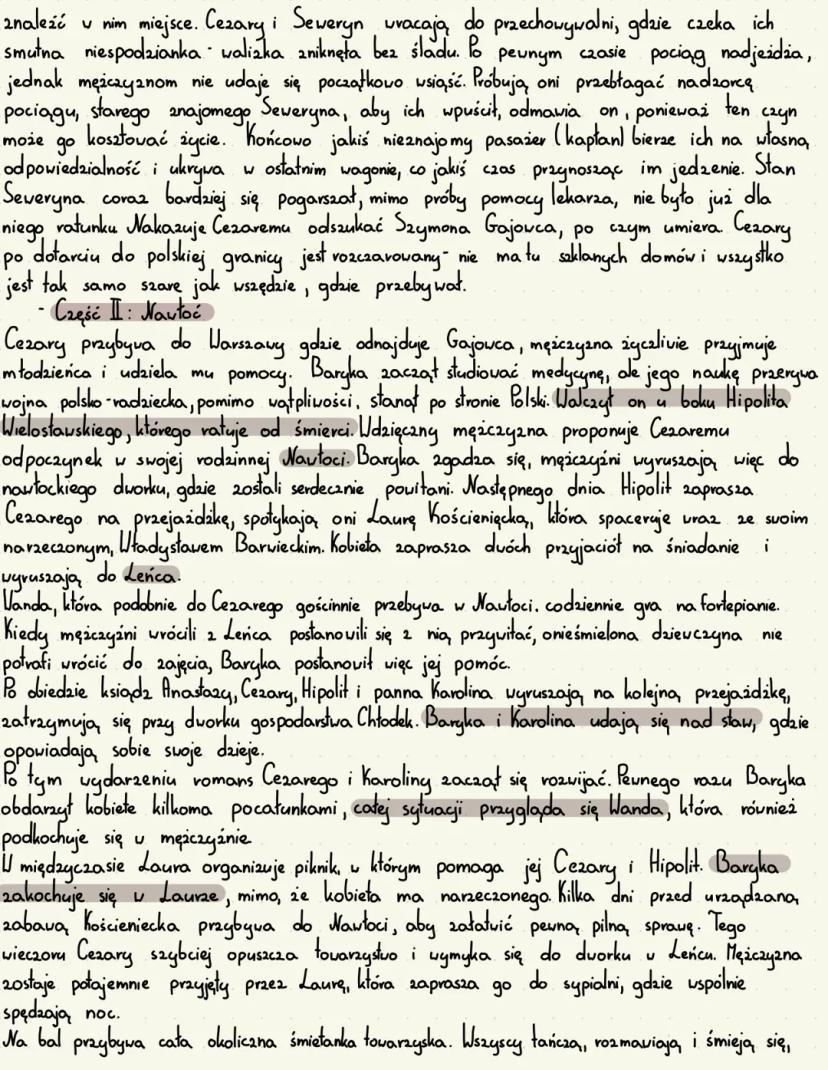 znaleźć w nim miejsce. Cezary i Seweryn wracają do przechowywalni, gdzie czeka ich
smutna niespodzianka - walizka zniknęła bez śladu. Po pewnym czasie pociąg nadjeżdża,
jednak mężczyznom nie udaje się początkowo wsiąść. Próbują oni przebłagać nadzorcę
pociągu, starego znajomego Seweryna, aby ich wpuścił, odmawia on, ponieważ ten czyn
może go kosztować życie. Końcowo jakiś nieznajomy pasażer (kapłan) bierze ich na własną
odpowiedzialność i ukrywa w ostatnim wagonie, co jakiś czas przynosząc im jedzenie. Stan
Seweryna coraz bardziej się pogarszał, mimo próby pomocy lekarza, nie było już dla
niego ratunku Nakazuje Cezaremu odszukać Szymona Gajowca, po czym umiera. Cezary
po dotarciu do polskiej granicy jest rozczarowany - nie ma tu szklanych domów i wszystko
jest tak samo szare jak wszędzie, gdzie przebywał.
- Część II: Nawłoć
Cezary przybywa do Warszawy gdzie odnajduje Gajowca, mężczyzna życzliwie przyjmuje
młodzieńca i udziela mu pomocy. Baryka zaczął studiować medycynę, ale jego naukę przerywa
wojna polsko-radziecka, pomimo wątpliwości, stanął po stronie Polski. Walczył on u boku Hipolita
Wielosławskiego, którego ratuje od śmierci. Wdzięczny mężczyzna proponuje Cezaremu
odpoczynek w swojej rodzinnej Nawłoci. Baryka zgadza się, mężczyźni wyruszają więc do
nawłockiego dworku, gdzie zostali serdecznie powitani. Następnego dnia Hipolit zaprasza
Cezarego na przejażdżkę, spotykają oni Laurę Kościeniecką, która spaceruje wraz ze swoim
narzeczonym, Władysławem Barwickim. Kobieta zaprasza dwóch przyjaciół na śniadanie i
wyruszają do Leńca.
Wanda, która podobnie do Cezarego gościnnie przebywa w Nawłoci. codziennie gra na fortepianie.
Kiedy mężczyźni wrócili z Leńca postanowili się z nią przywitać, onieśmielona dziewczyna nie
potrafi wrócić do zajęcia, Baryka postanowił więc jej pomóc.
Po obiedzie ksiądz Anastazy, Cezary, Hipolit i panna Karolina wyruszają na kolejną przejażdżkę,
zatrzymują się przy dworku gospodarstwa Chłodek. Baryka i Karolina udają się nad staw, gdzie
opowiadają sobie swoje dzieje.
Po tym wydarzeniu romans Cezarego i Karoliny zaczął się rozwijać. Pewnego razu Baryka
obdarzył kobiete kilkoma pocałunkami, całej sytuacji przygląda się Wanda, która również
podkochuje się w mężczyźnie
W międzyczasie Laura organizuje piknik, w którym pomaga jej Cezary i Hipolit. Baryka
zakochuje się w Laurze, mimo, że kobieta ma narzeczonego. Kilka dni przed urządzaną
zabawą Kościeniecka przybywa do Nawłoci, aby załatwić pewną pilną sprawę. Tego
wieczoru Cezary szybciej opuszcza towarzystwo i wymyka się do dworku w Leńcu. Mężczyzna
zostaje potajemnie przyjęty przez Laurę, która zaprasza go do sypialni, gdzie wspólnie
spędzają noc.
Na bal przybywa cała okoliczna śmietanka towarzyska. Wszyscy tańczą, rozmawiają i śmieją się,